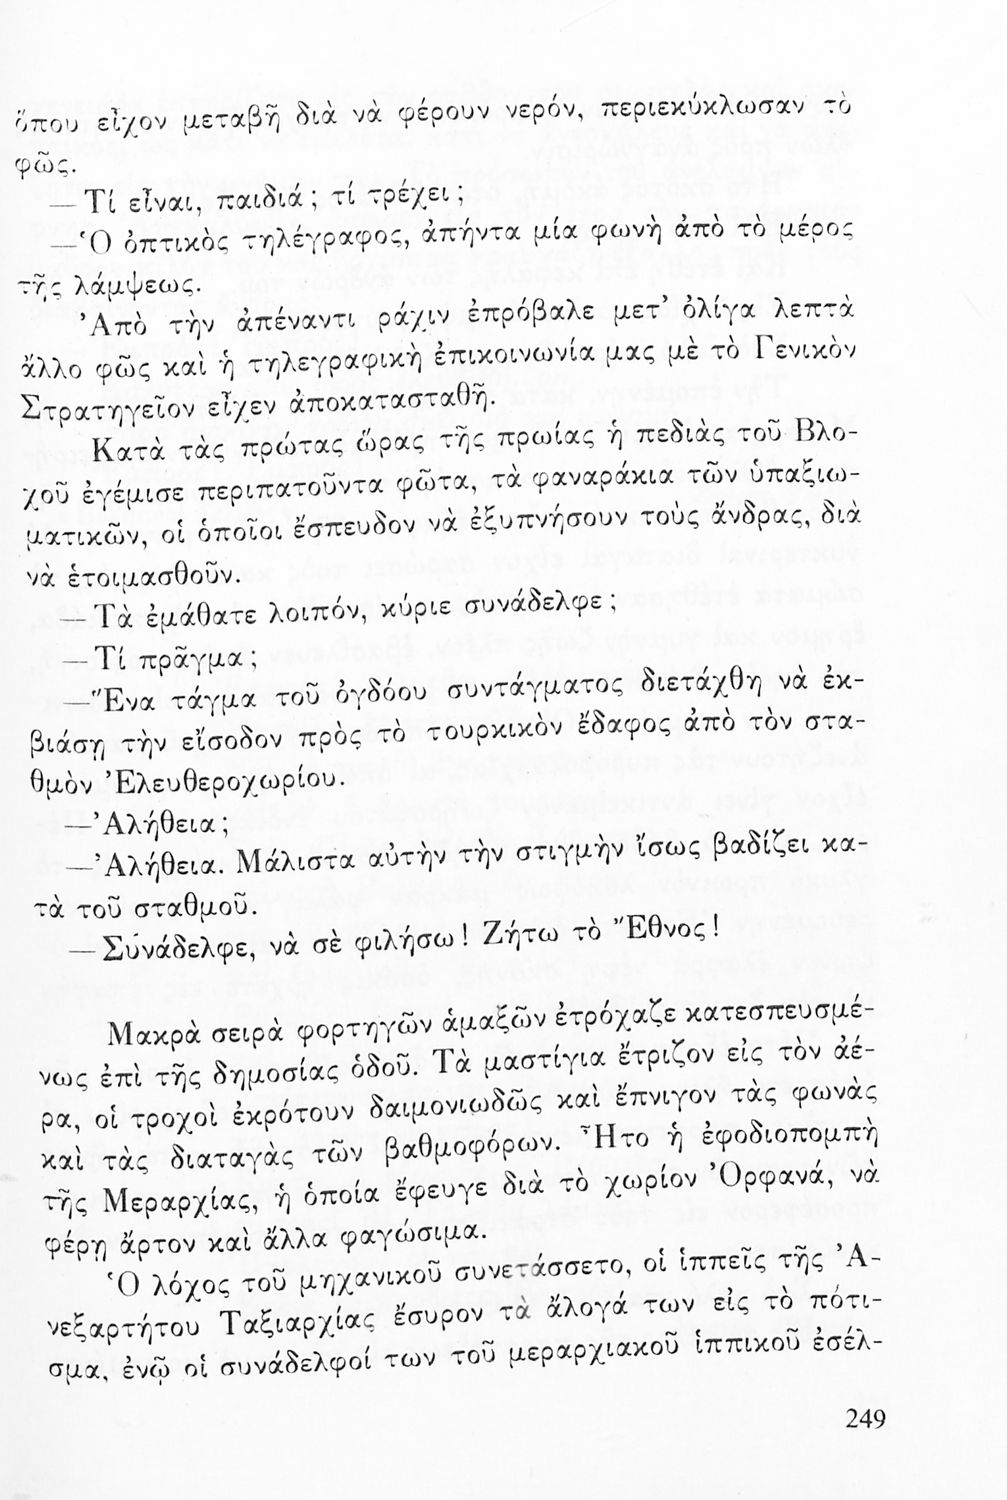 ὅπου εἶχον μεταβῆ διὰ νὰ φέρουν νερόν, περιεκύκλωσαν τὸ
φῶς.
— Τί εἶναι, παιδιά; τί τρέχει;
—Ὁ ὀπτικὸς τηλέγραφος, ἀπήντα μία φωνὴ ἀπὸ τὸ μέρος
τῆς λάμψεως.
Ἀπὸ τὴν ἀπέναντι ράχιν ἐπρόβαλε μετ’ ὀλίγα λεπτὰ
ἄλλο φῶς καὶ ἡ τηλεγραφικὴ ἐπικοινωνία μας μὲ τὸ Γενικὸν
Στρατηγεῖον εἶχεν ἀποκατασταθῆ.
Κατὰ τὰς πρώτας ὥρας τῆς πρωίας ἡ πεδιὰς τοῦ Βλο-
χοῦ ἐγέμισε περιπατοῦντα φῶτα, τὰ φαναράκια τῶν ὑπαξιω-
ματικῶν, οἱ ὁποῖοι ἔσπευδον νὰ ἐξυπνήσουν τοὺς ἄνδρας, διὰ
νὰ ἑτοιμασθοῦν.
— Τὰ ἐμάθατε λοιπόν, κύριε συνάδελφε;
— Τί πρᾶγμα;
—Ἕνα τάγμα τοῦ ὀγδόου συντάγματος διετάχθη νὰ ἐκ-
βιάσῃ τὴν εἴσοδον πρὸς τὸ τουρκικὸν ἔδαφος ἀπὸ τὸν στα-
θμὸν Ἐλευθεροχωρίου.
—Ἀλήθεια;
—Ἀλήθεια. Μάλιστα αὐτὴν τὴν στιγμὴν ἴσως βαδίζει κα-
τὰ τοῦ σταθμοῦ.
— Συνάδελφε, νὰ σὲ φιλήσω! Ζήτω τὸ Ἔθνος!
Μακρὰ σειρὰ φορτηγῶν ἁμαξῶν ἐτρόχαζε κατεσπευσμέ-
νως ἐπὶ τῆς δημοσίας ὁδοῦ. Τὰ μαστίγια ἔτριζον εἰς τὸν ἀέ-
ρα, οἱ τροχοὶ ἐκρότουν δαιμονιωδῶς καὶ ἔπνιγον τὰς φωνὰς
καὶ τὰς διαταγὰς τῶν βαθμοφόρων. Ἦτο ἡ ἐφοδιοπομπὴ
τῆς Μεραρχίας, ἡ ὁποία ἔφευγε διὰ τὸ χωρίον Ὀρφανά, νὰ
φέρῃ ἄρτον καὶ ἄλλα φαγώσιμα.
Ὁ λόχος τοῦ μηχανικοῦ συνετάσσετο, οἱ ἱππεῖς τῆς Ἀ-
νεξαρτήτου Ταξιαρχίας ἔσυρον τὰ ἄλογά των εἰς τὸ πότι-
σμα, ἐνῷ οἱ συνάδελφοί των τοῦ μεραρχιακοῦ ἱππικοῦ ἐσέλ-
249